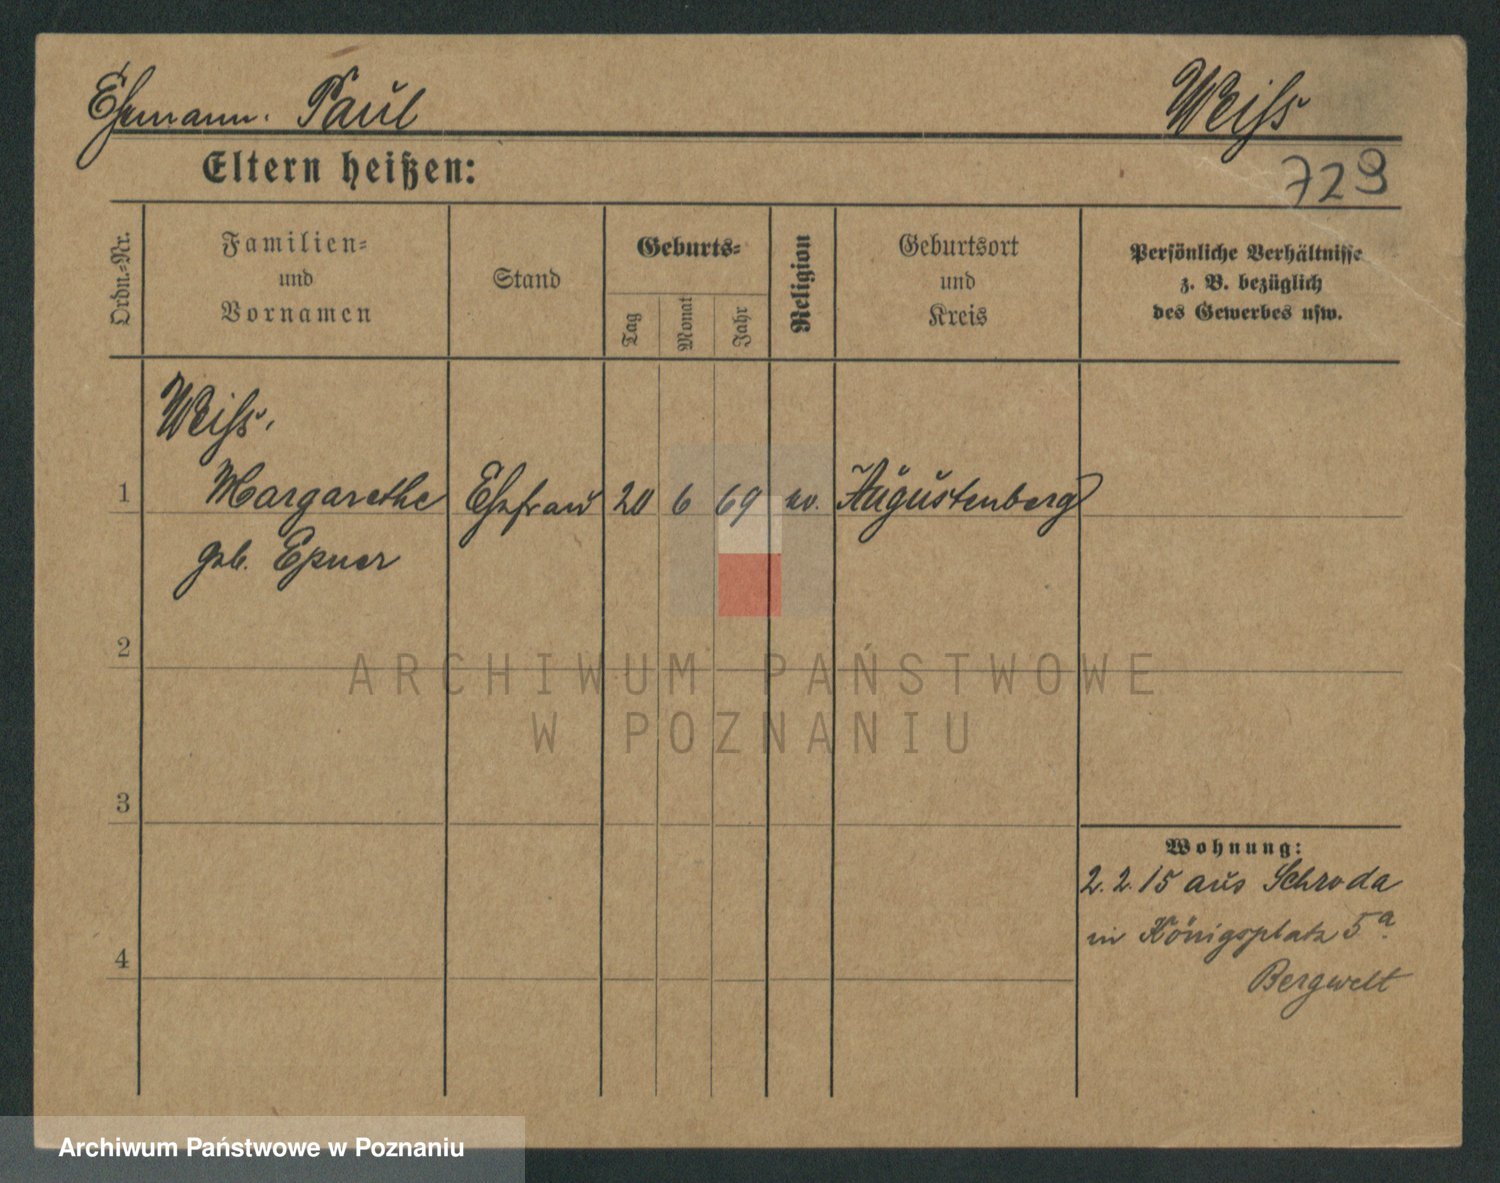 Ehemann. Paul Weiss
Eltern heißen:
729
Ordn.-Nr.
Familien-
und
Vornamen
Stand
Geburts-
Tag
Monat
Jahr
Religion
Geburtsort
und
Kreis
Persönliche Verhältnisse
z. B. bezüglich
des Gewerbes usw.
Weiss,
1 Margarethe Ehefrau 20 6 69 ev. Augustenberg
geb. Epner
2
ARCHIWUM PAŃSTWOWE
W POZNANIU
3
Wohnung:
2.2.15 aus Schroda
in Königsplatz 5a.
4
Bergwelt
Archiwum Państwowe w Poznaniu